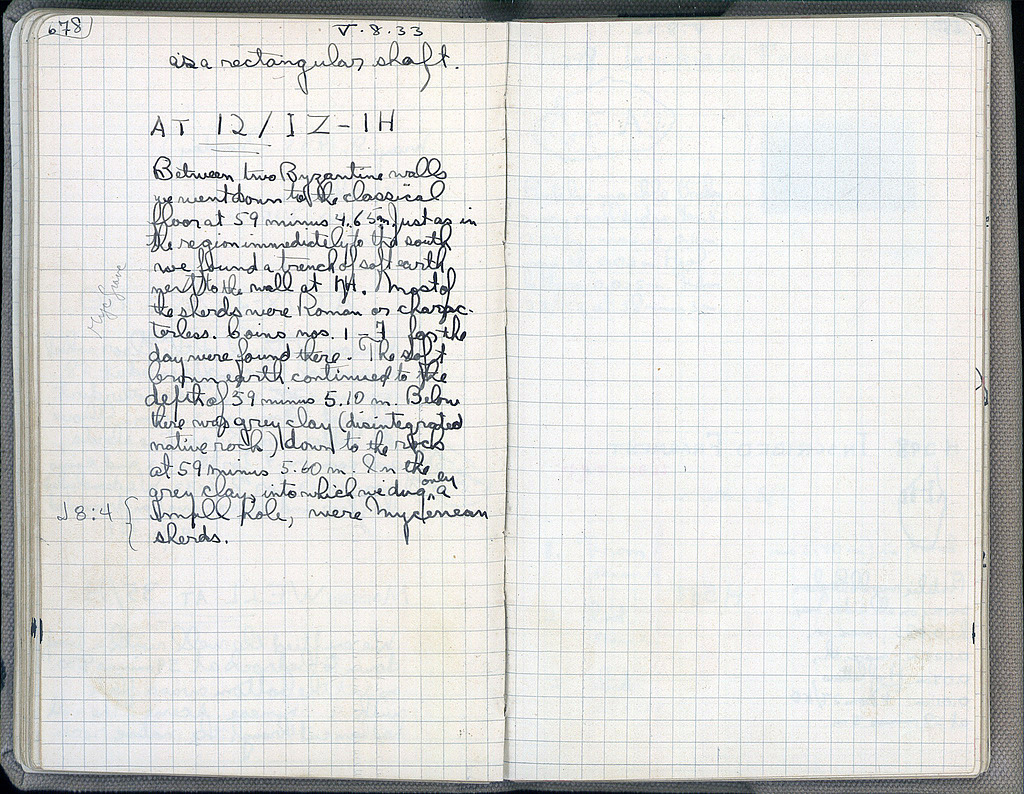 678
V.8.33
is a rectangular shaft.
AT 12/IZ-IH
Between two Byzantine walls
we went down to the classical
floor at 59 minus 4.65m. Just as in
the region immediately to the south
we found a trench of soft earth
next to the wall at IH. Most of
the sherds were Roman or charac-
terless. Coins nos. 1-7 for the
day were found there. The soft
brown earth continued to the
depth of 59 minus 5.10 m. Below
there was grey clay (disintegrated
native rock) down to the rock
at 59 minus 5.60 m. In the
grey clay, into which we dug only a
J 8:4 { small hole, were Mycenean
sherds.
Myc grave